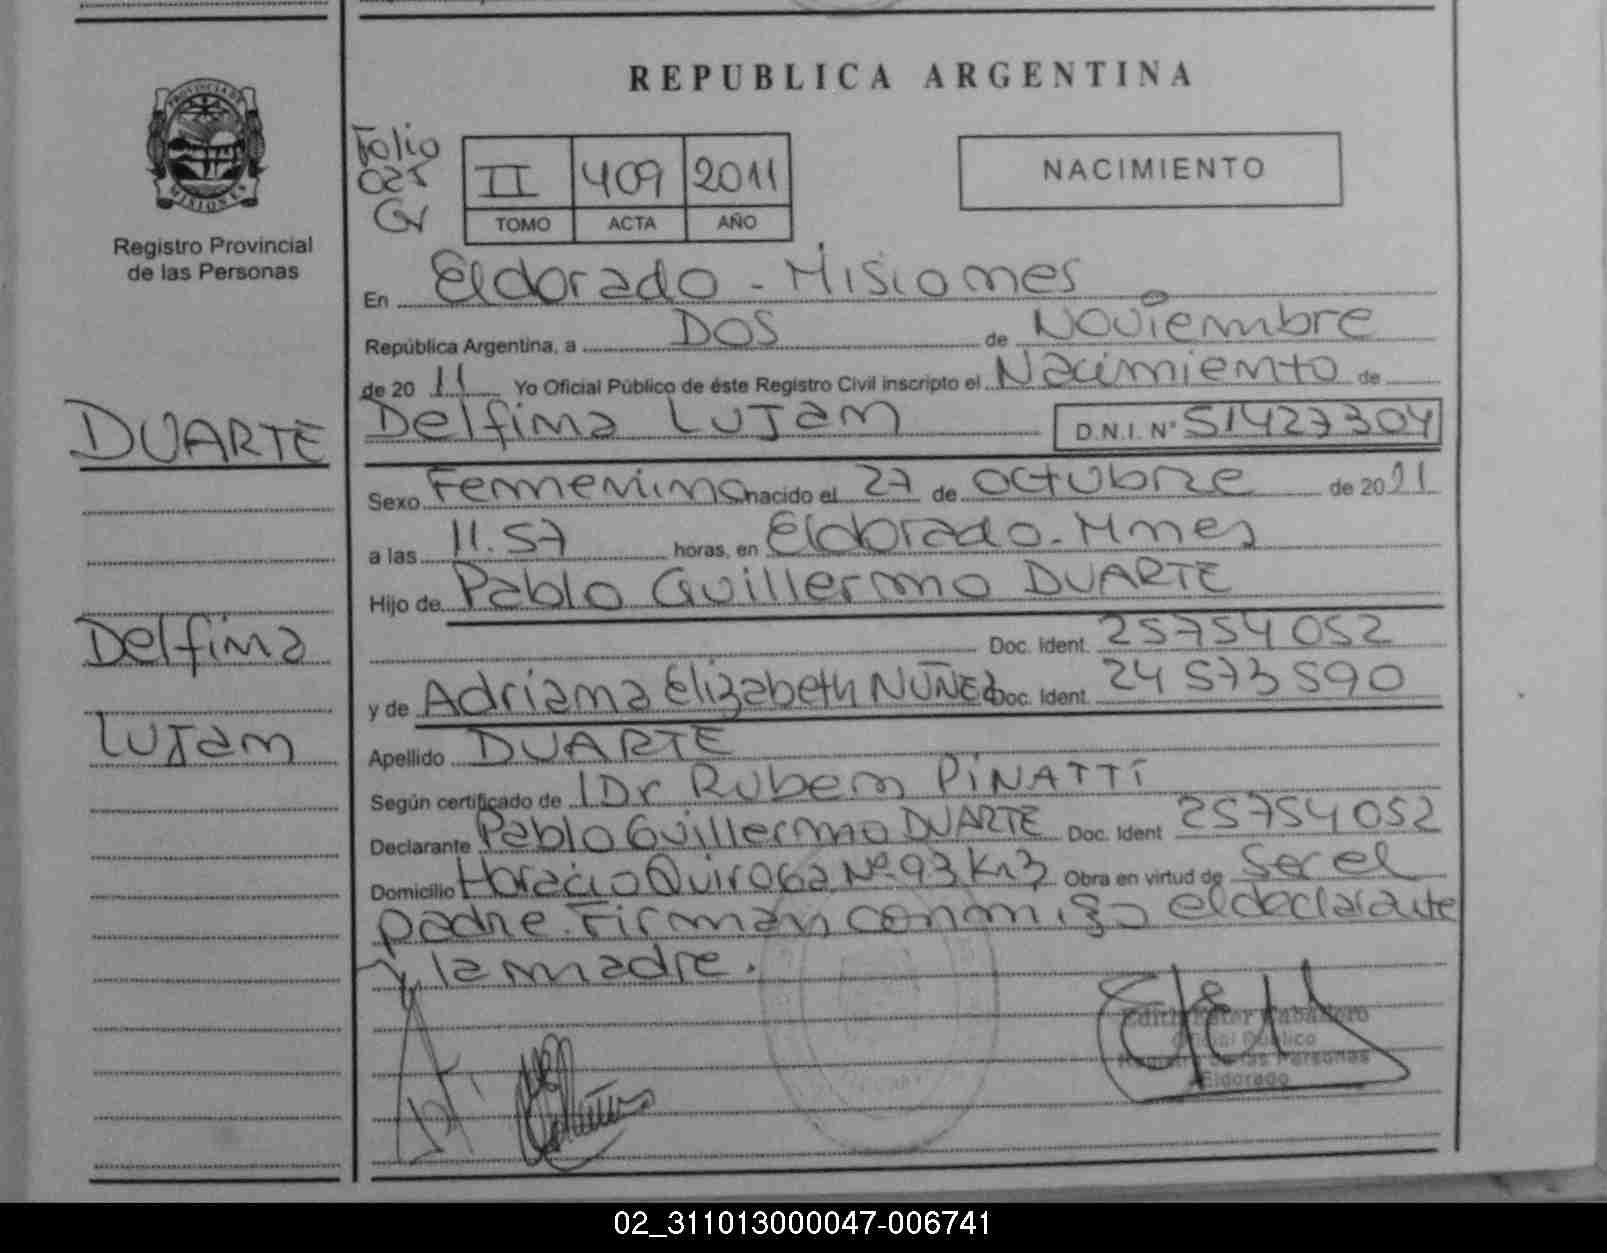 REPUBLICA ARGENTINA
PROVINCIA DE MISIONES
Registro Provincial
de las Personas
Folio
025
II 409 2011
TOMO ACTA AÑO
NACIMIENTO
En Eldorado - Misiones
República Argentina, a DOS de Noviembre
de 20 11 Yo Oficial Público de éste Registro Civil inscripto el Nacimiento de
DUARTE
Delfina LUJAN D.N.I. N° 51427304
Sexo Femenino nacido el 27 de octubre de 2011
a las 11.57 horas, en Eldorado - Mnes
Hijo de Pablo Guillermo DUARTE
Delfina
Doc. Ident. 25754052
y de Adriana Elizabeth NUÑEZ Doc. Ident. 24573590
LUJAN
Apellido DUARTE
Según certificado de Dr Ruben PINATTI
Declarante Pablo Guillermo DUARTE Doc. Ident 25754052
Domicilio Horacio Quiroga Nº 93 Km3 Obra en virtud de ser el
padre. Firman conmigo el declarante
y la madre.
Edith Ester Caballero
Oficial Público
Registro de las Personas
Eldorado
02_311013000047-006741